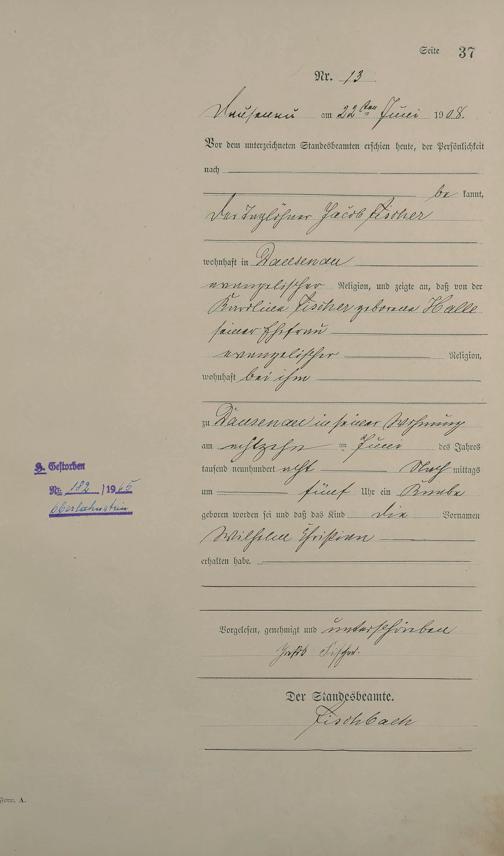 Seite 37
Nr. 13
Dausenau am 22ten Juni 1908.
Vor dem unterzeichneten Standesbeamten erschien heute, der Persönlichkeit
nach
be kannt,
der Taglöhner Jacob Fischer
wohnhaft in Dausenau
evangelischer Religion, und zeigte an, daß von der
Karolina Fischer geborene Halle
seiner Ehefrau
evangelischer Religion,
wohnhaft bei ihm
zu Dausenau in seiner Wohnung
am achtzehn = Juni des Jahres
tausend neunhundert acht Nach mittags
um fünf Uhr ein Knabe
geboren worden sei und daß das Kind die Vornamen
Wilhelm Christian
erhalten habe.
Vorgelesen, genehmigt und unterschrieben
Jakob Fischer.
Der Standesbeamte.
Fischbach
Gestorben
Nr. 182 /1965
Oberlahnstein
Form. A.